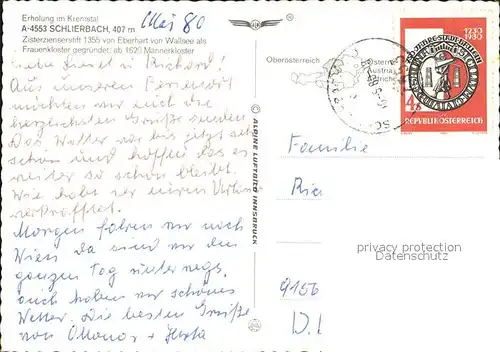 Erholung im Kremstal
A-4553 SCHLIERBACH, 407 m
Zisterzienserstift 1355 von Eberhart von Wallsee als
Frauenkloster gegründet; ab 1621 Männerkloster
Mai 80
Liebe Liesel u. Richard!
Aus unseren Ferienort
möchten wir euch die
herzlichsten Grüße senden
Das Wetter war bis jetzt sehr
schön und hoffen das es
weiter so schön bleibt.
Wie habt ihr euren
verkraftet.
Morgen fahren wir nach
Wien da sind wir den
ganzen Tag unterwegs.
auch haben wir schönes
Wetter. Die besten Grüße
von Ottomar + Herta
© ALPINE LUFTBILD INNSBRUCK
Oberösterreich
1230
1980
4s
REPUBLIK ÖSTERREICH
Familie
Ric
privacy protection
Datenschutz
D.